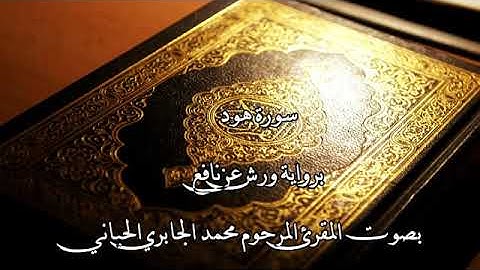 سورة هود
برواية ورش عن نافع
بصوت المقرئ المرحوم محمد الجابري الحياني